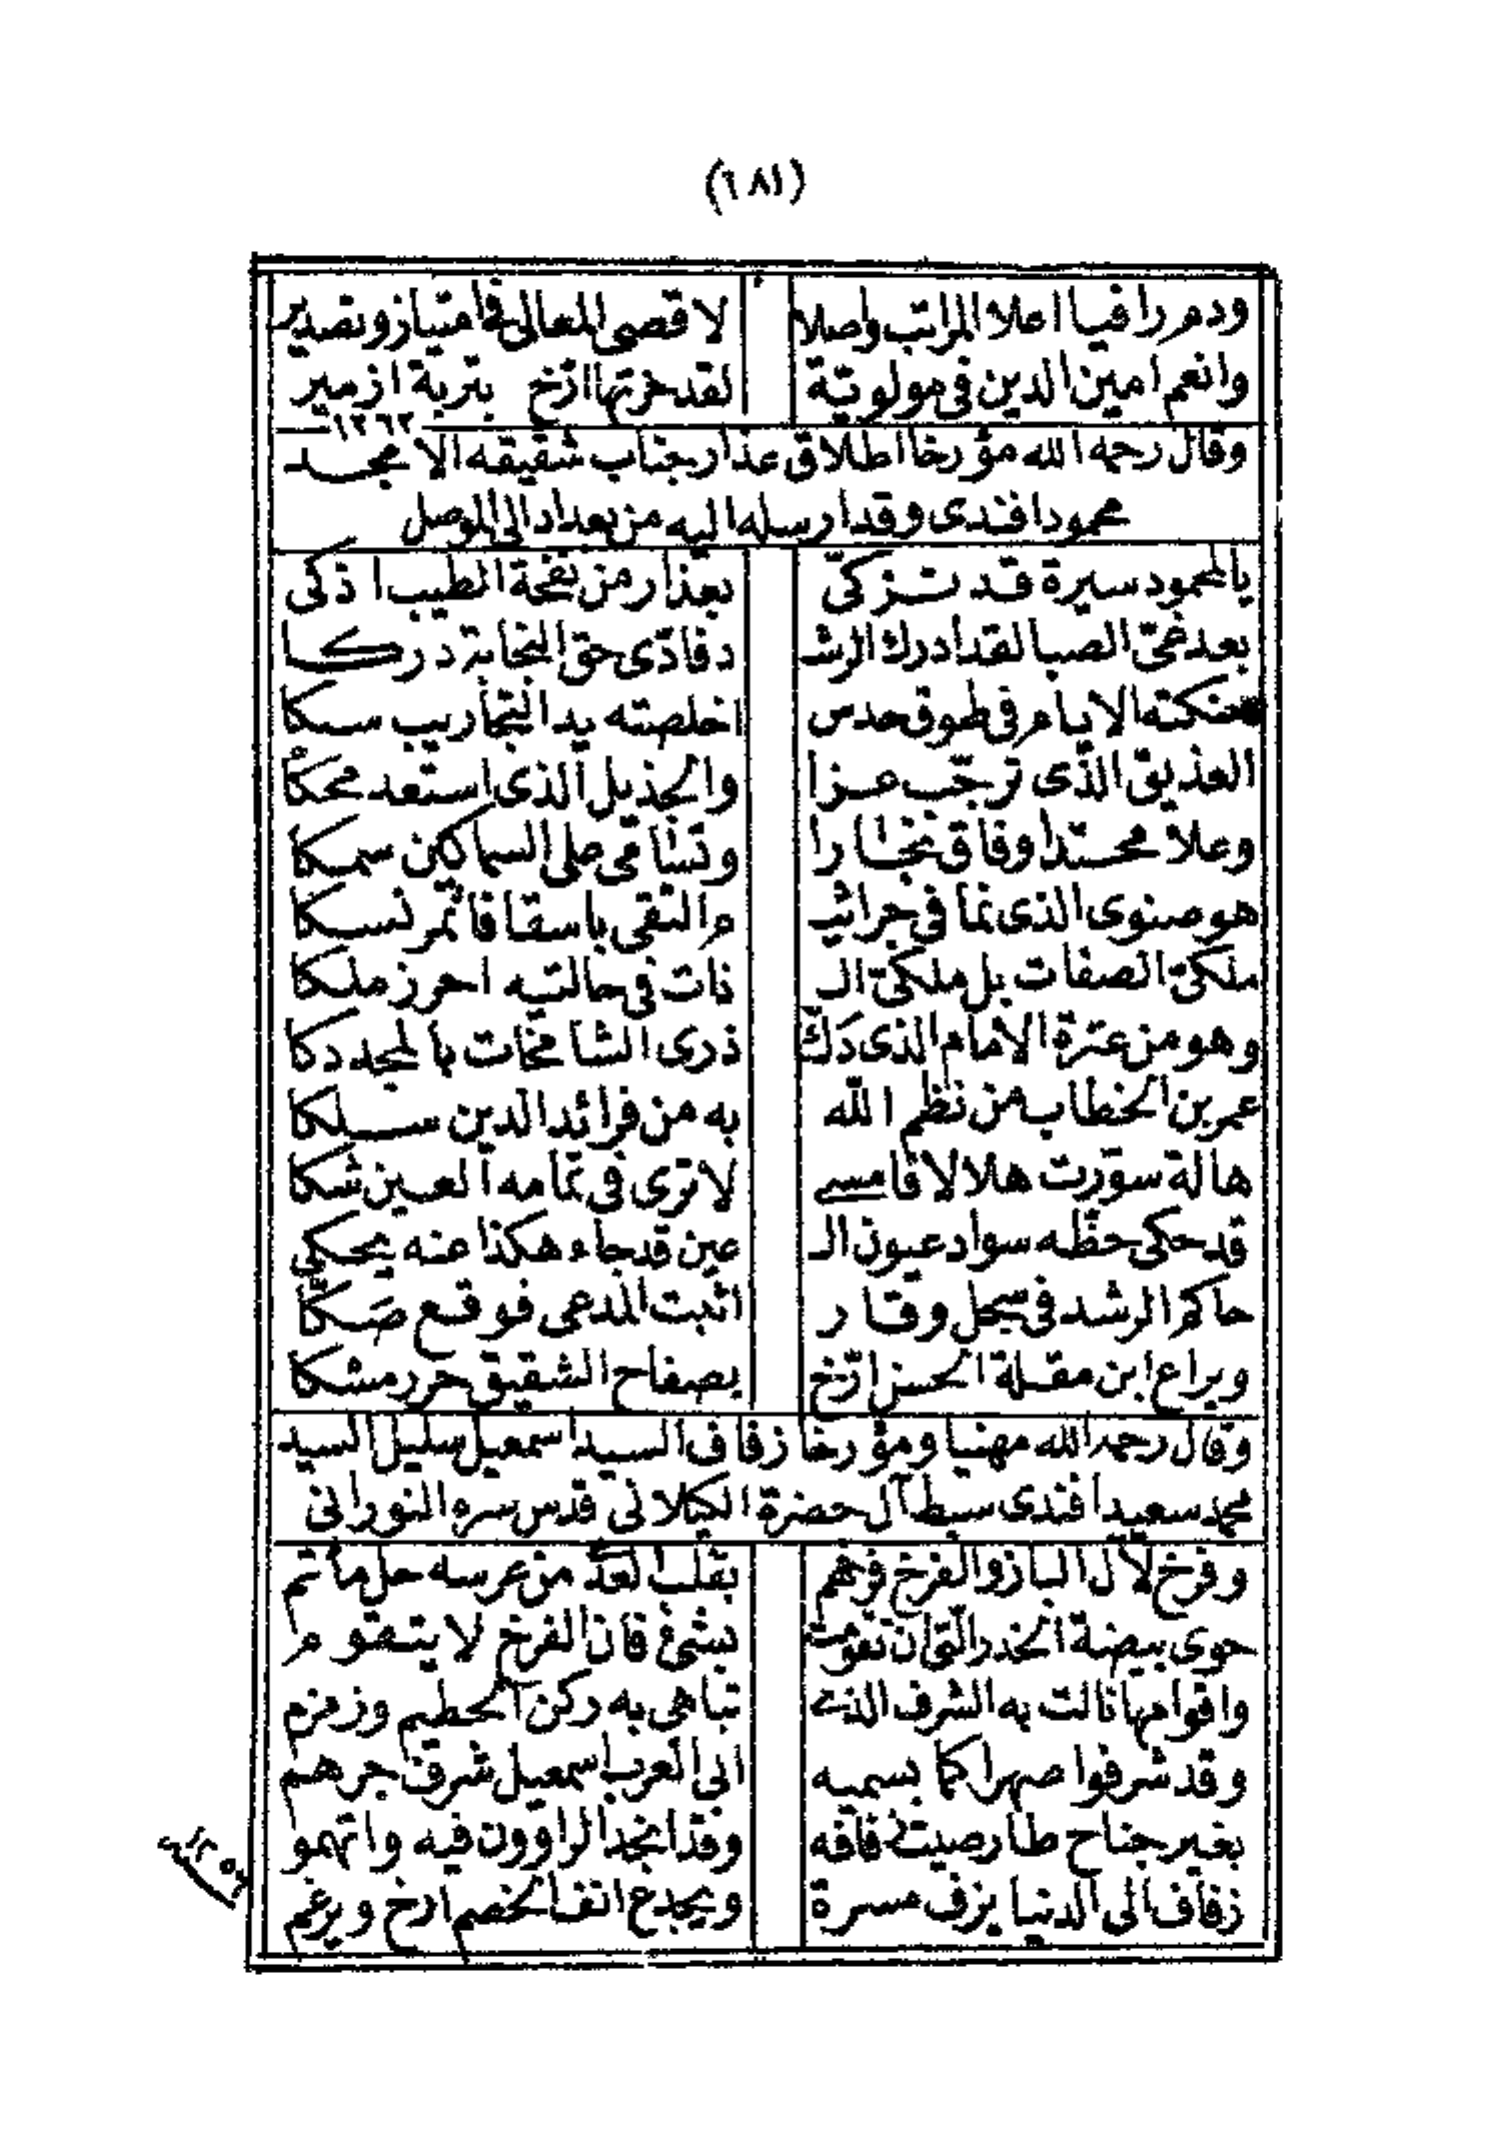 (١٨١)
ودم راقيا اعلا المراتب واصلا لاقصى المعالى فى امتياز وتصدير
وانعم امين الدين فى مولويّة لقد حزتها ارّخ بتربة ازمير
١٢٦٢
وقال رحمه الله مؤرخا اطلاق عذار جناب شقيقه الامجد
محمود افندى وقد ارسله اليه من بغداد الى الموصل
يا لمحمود سيرة قد تزكىّ بعذار من نفحة الطيب اذكى
بعد غىّ الصبا لقد ادرك الرشـ د فادّى حق النجابة دركا
حنكته الايام فى طوق حدس اخلصته يد التجاريب سبكا
العذيق الذى ترجّب عزا والجذيل الذى استعد محكا
وعلا محتدا وفاق نجارا وتسامى على السماكين سمكا
هو صنوى الذى نما فى جراثيـ م التقى باسقا فاثمر نسكا
ملكىّ الصفات بل ملكىّ الـ ذات فى حالتيه احرز ملكا
وهو من عترة الامام الذى دَكّ ذرى الشامخات بالمجد دكا
عمر بن الخطاب من نظم اللّه به من فرائد الدين سلكا
هالة سوّرت هلالا فامسى لا ترى فى تمامه العين شكا
قد حكى حظّه سواد عيون الـ عين قد جاء هكذا عنه يحكى
حاكم الرشد فى سجل وقار اثبت المدعى فوقع صَكّا
ويراع ابن مقلة الحسن ارّخ بصفاح الشقيق حرر مشكا
وقال رحمه الله مهنيا ومؤرخا زفاف السيد اسمعيل سليل السيد
محمد سعيد افندى سبط آل حضرة الكيلانى قدس سره النورانى
وفرخ لآل الباز والفرخ فرهم بقلب العدّ من عرسه حل مأتم
حوى بيضة الخدر التى ان تقومت بشىء فان الفرخ لا يتقوم
واقوامها نالت به الشرف الذى تباهى به ركن الحطيم وزمزم
وقد شرفوا صهرا كما بسميه الى العرب اسمعيل شرف جرهم
بغير جناح طار صيت زفافه وقد انجد الراوون فيه واتهمو
زفاف الى الدنيا يزف مسرة ويجدع انف الخصم ارخ ويرغم
١٢٥٢